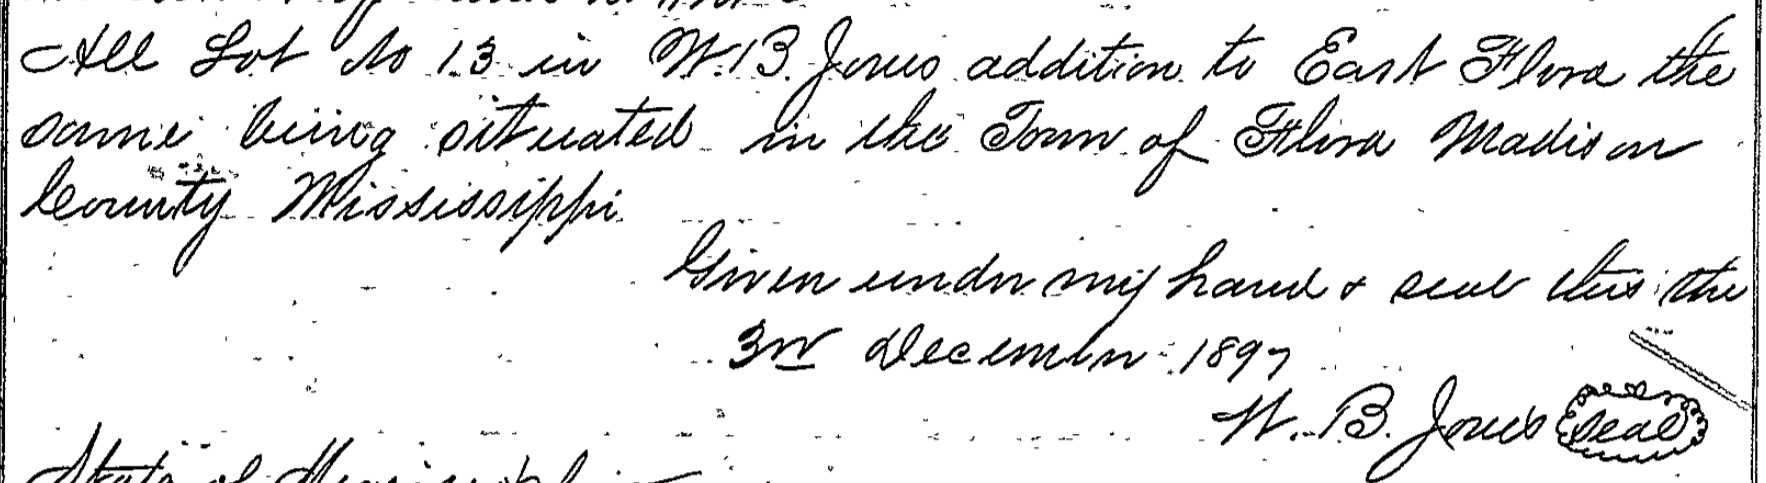 All Lot No 13 in W.B. Jones addition to East Flora the
same being situated in the Town of Flora Madison
County Mississippi
Given under my hand & seal this the
3rd December 1897
W. B. Jones Seal
State of Mississippi